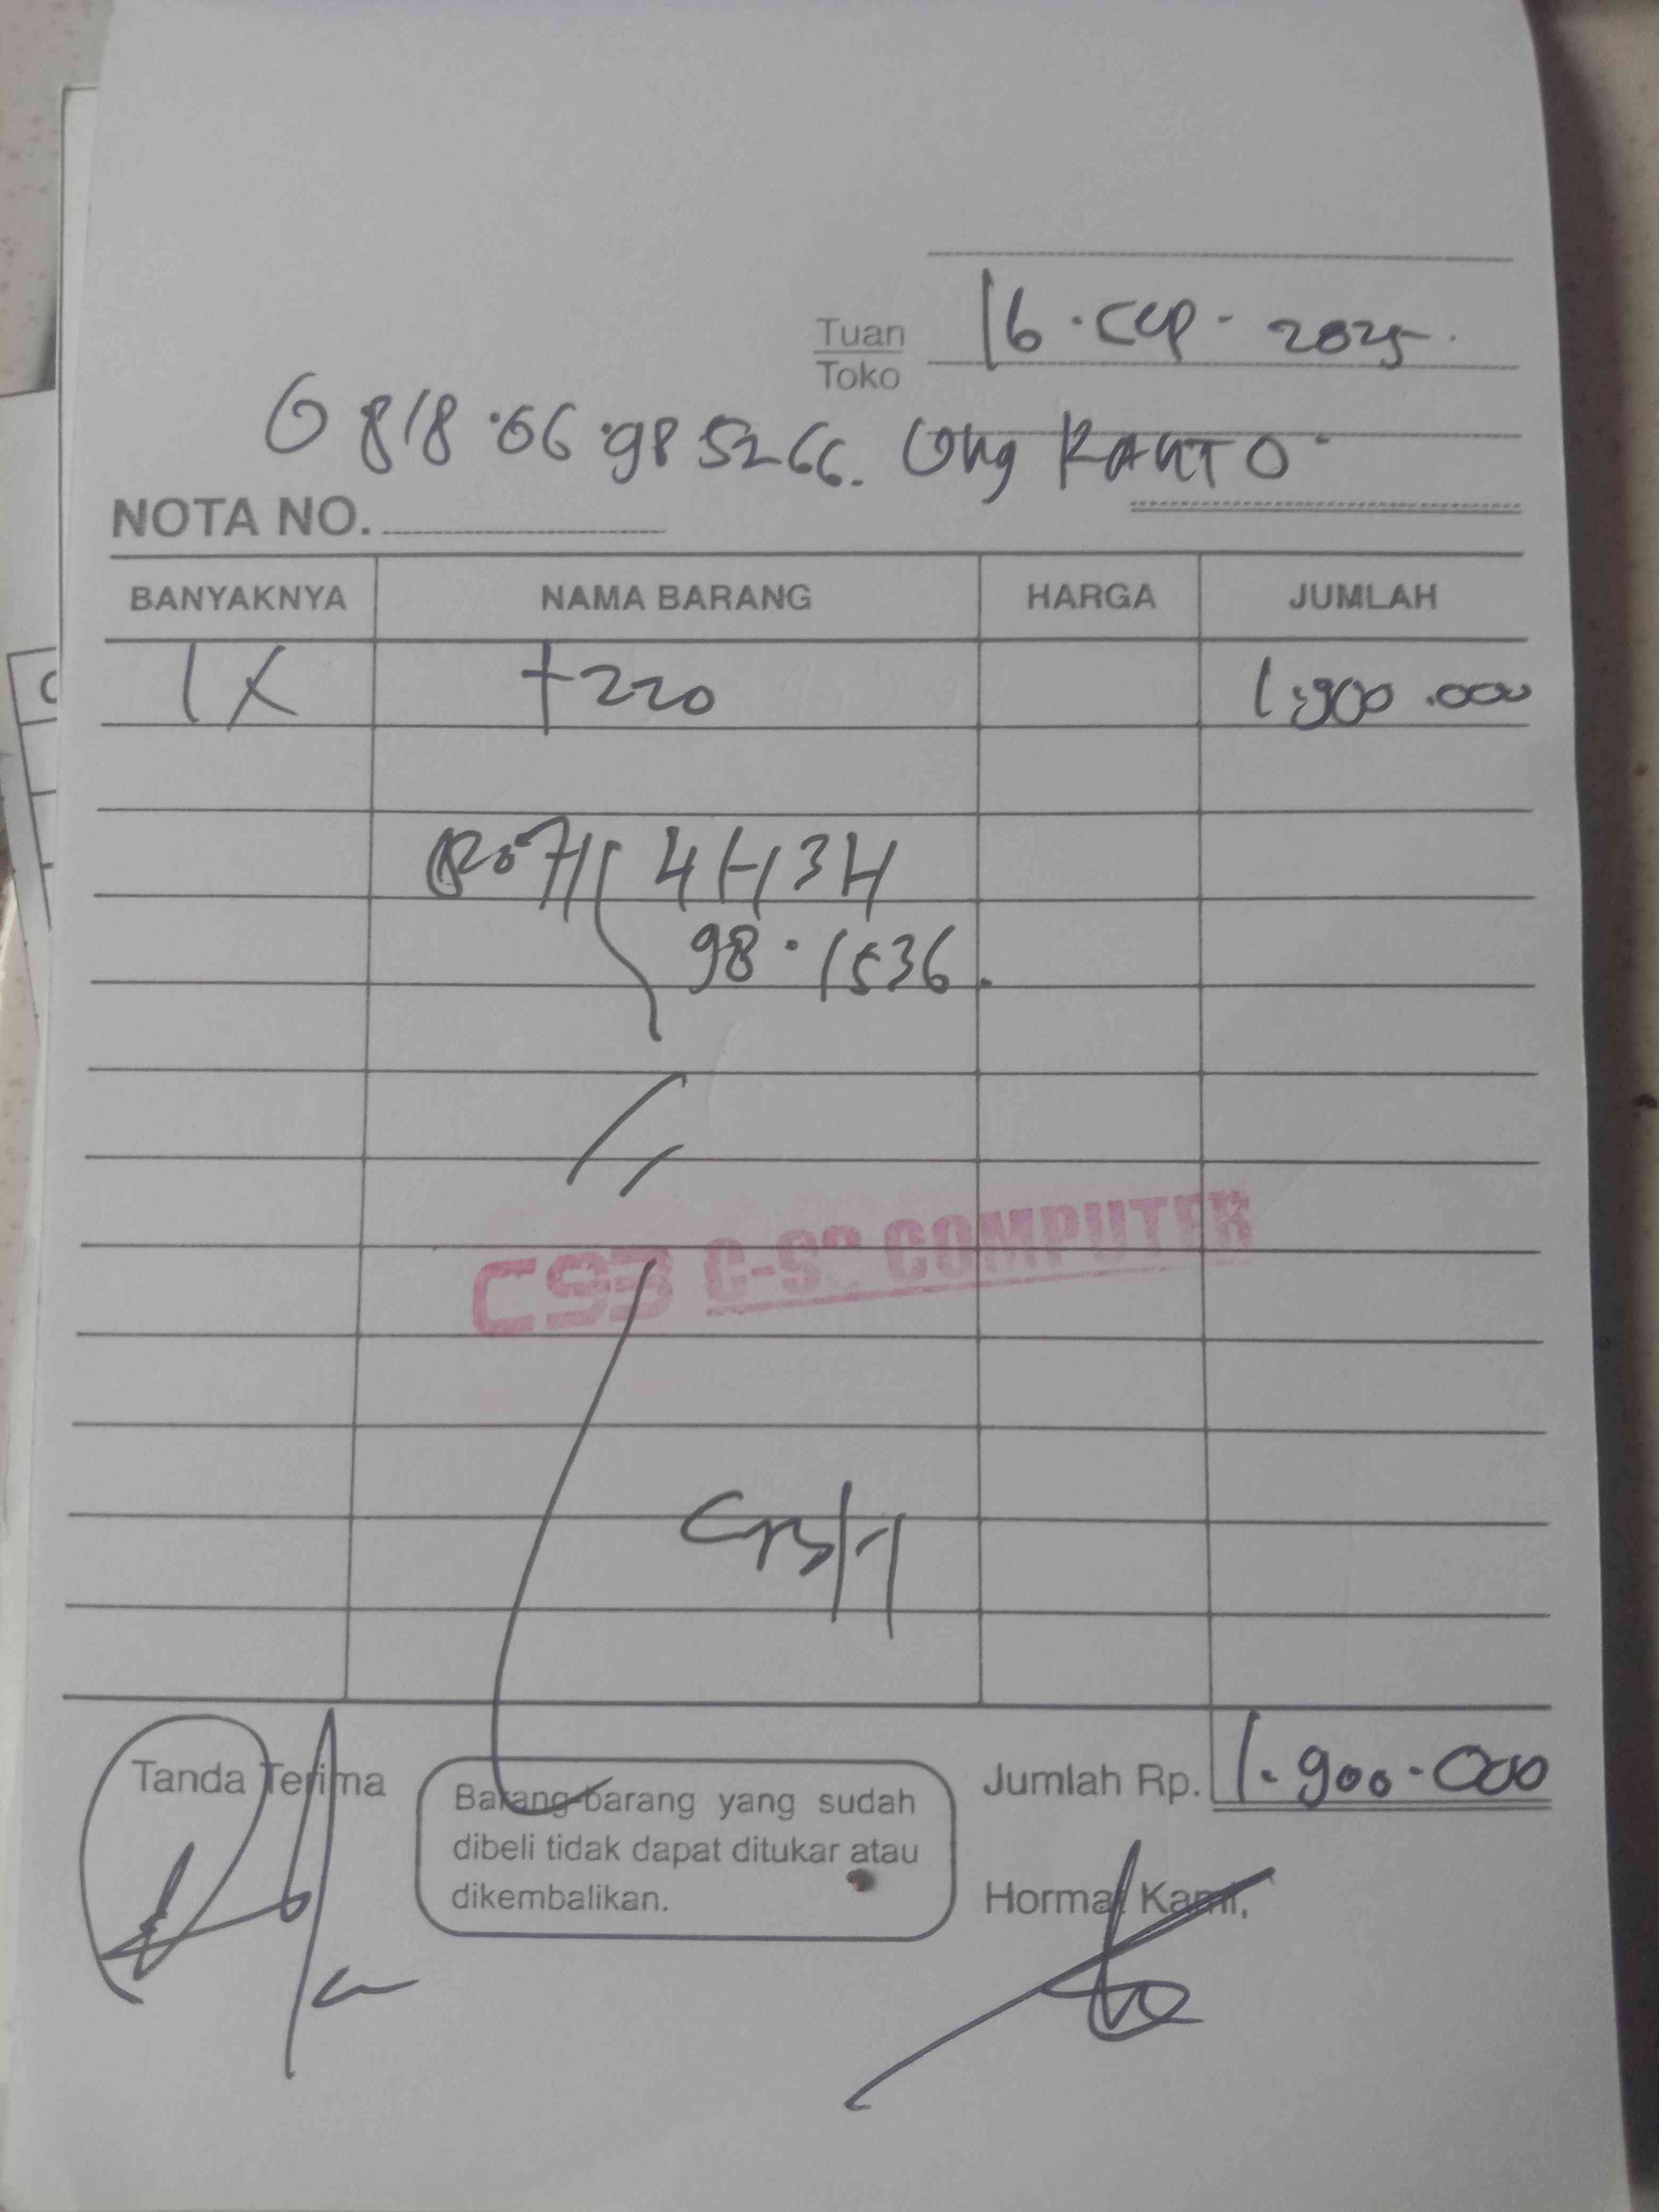 Tuan 16 · Sep - 2025.
Toko
0818 · 06 · 98 5266. Ong KANTO
NOTA NO.
BANYAKNYA NAMA BARANG HARGA JUMLAH
1 X T220 1.900.000
4H34
98 · 1536.
C93 COMPUTER
CASH
Tanda Terima
Barang-barang yang sudah
dibeli tidak dapat ditukar atau
dikembalikan.
Jumlah Rp. 1.900.000
Hormat Kami,